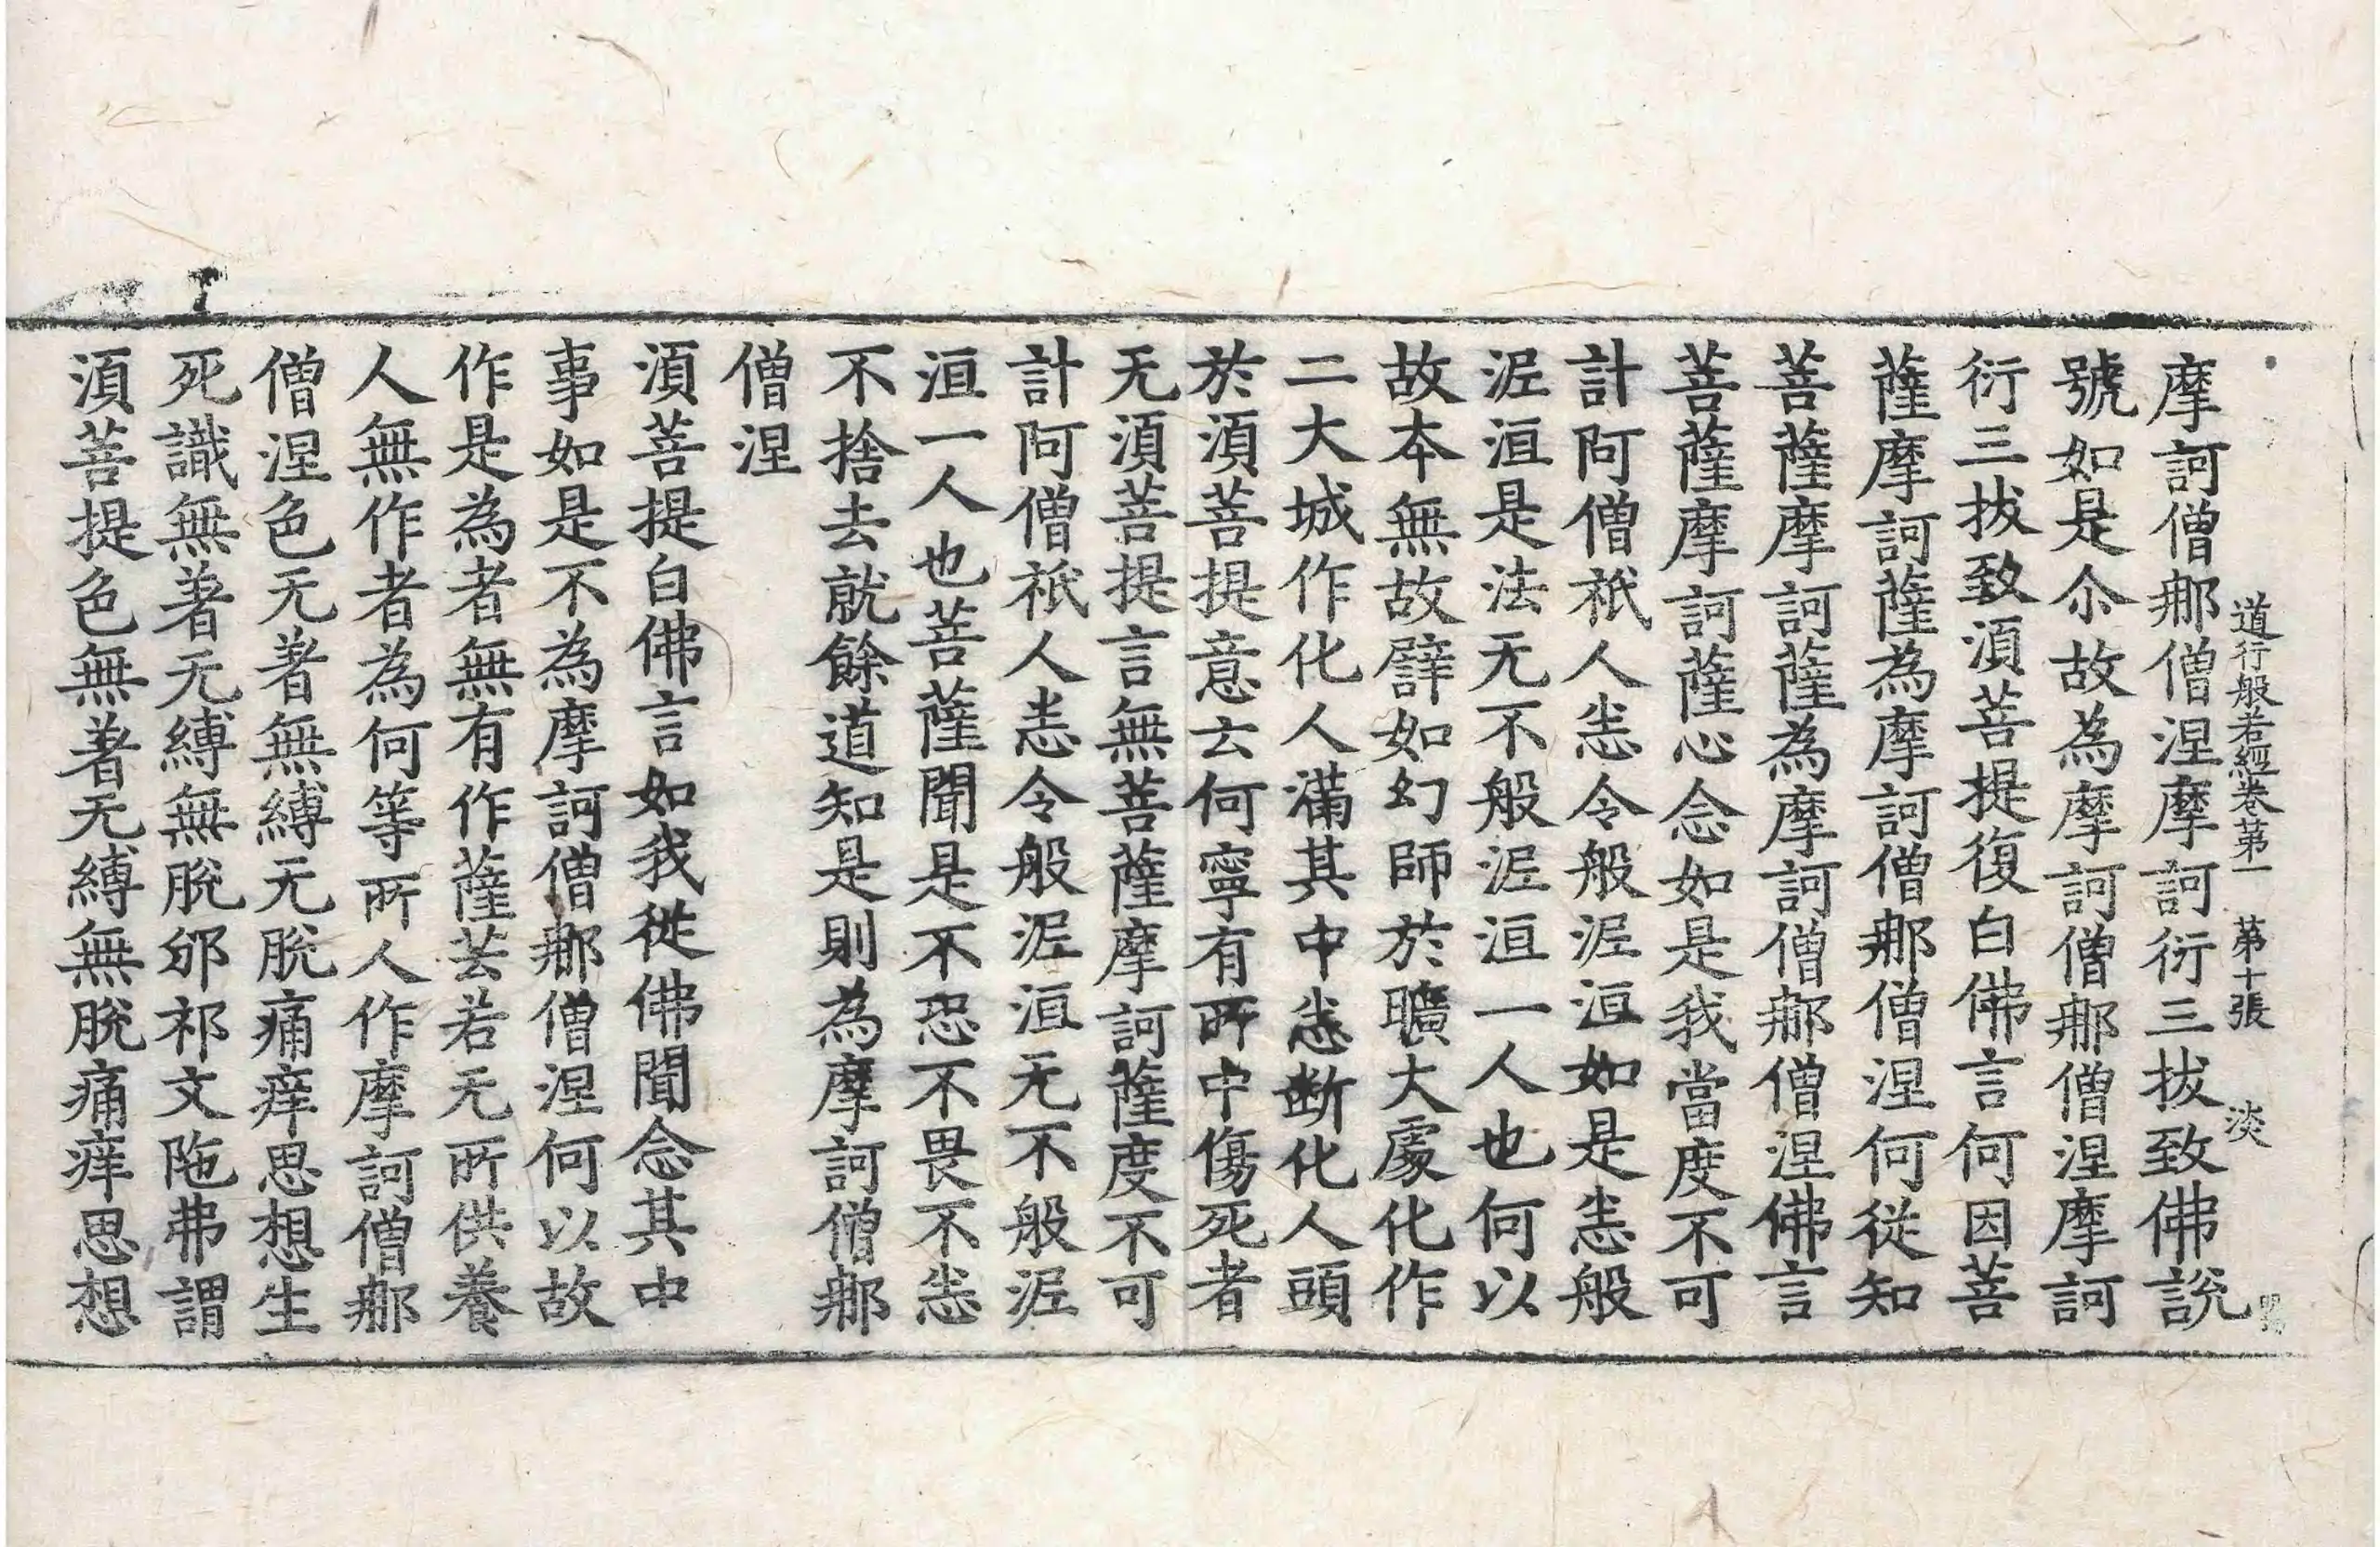 道行般若經卷第一　第十張　淡
摩訶僧那僧涅摩訶衍三拔致佛說
號如是尒故為摩訶僧那僧涅摩訶
衍三拔致須菩提復白佛言何因菩
薩摩訶薩為摩訶僧那僧涅何從知
菩薩摩訶薩為摩訶僧那僧涅佛言
菩薩摩訶薩心念如是我當度不可
計阿僧祇人悉令般泥洹如是悉般
泥洹是法无不般泥洹一人也何以
故本無故譬如幻師於曠大處化作
二大城作化人滿其中悉斷化人頭
於須菩提意云何寧有所中傷死者
无須菩提言無菩薩摩訶薩度不可
計阿僧祇人悉令般泥洹无不般泥
洹一人也菩薩聞是不恐不畏不恚
不捨去就餘道知是則為摩訶僧那
僧涅
須菩提白佛言如我從佛聞念其中
事如是不為摩訶僧那僧涅何以故
作是為者無有作薩芸若无所供養
人無作者為何等所人作摩訶僧那
僧涅色无著無縛无脫痛痒思想生
死識無著无縛無脫邠祁文陁弗謂
須菩提色無著无縛無脫痛痒思想